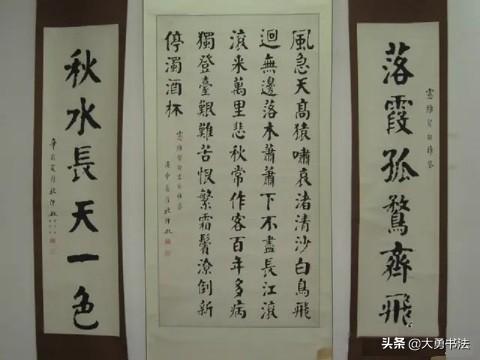 落霞孤鶩齊飛
風急天高猿嘯哀渚清沙白鳥飛
迴無邊落木蕭蕭下不盡長江滾
滾来萬里悲秋常作客百年多病
獨登臺艱難苦恨繁霜鬢潦倒新
停濁酒杯
秋水長天一色
头条 @大勇书法